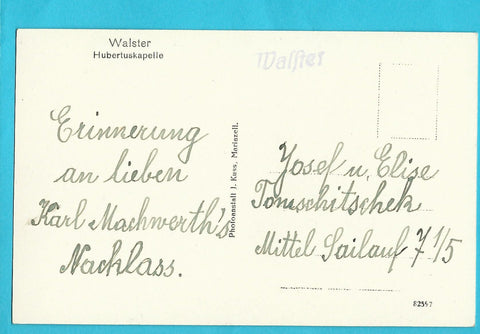 Walster
Hubertuskapelle
Walster
Erinnerung
an lieben
Karl Machwerth's
Nachlass.
Photoanstalt J. Kuss, Mariazell.
Josef u. Elise
Tomschitschek
Mittel Sailauf 7 1/5
82557